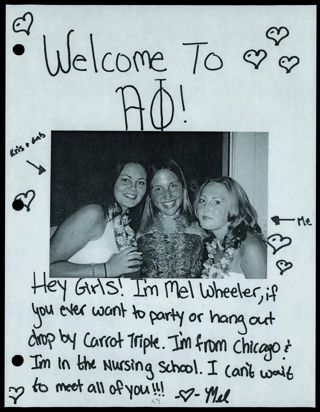 Welcome To
AΦ!
Kris +
Me
Hey Girls! I'm Mel Wheeler, if
you ever want to party or hang out
drop by Carrot Triple. I'm from Chicago &
I'm in the Nursing School. I can't wait
to meet all of you!!! ♡- Mel